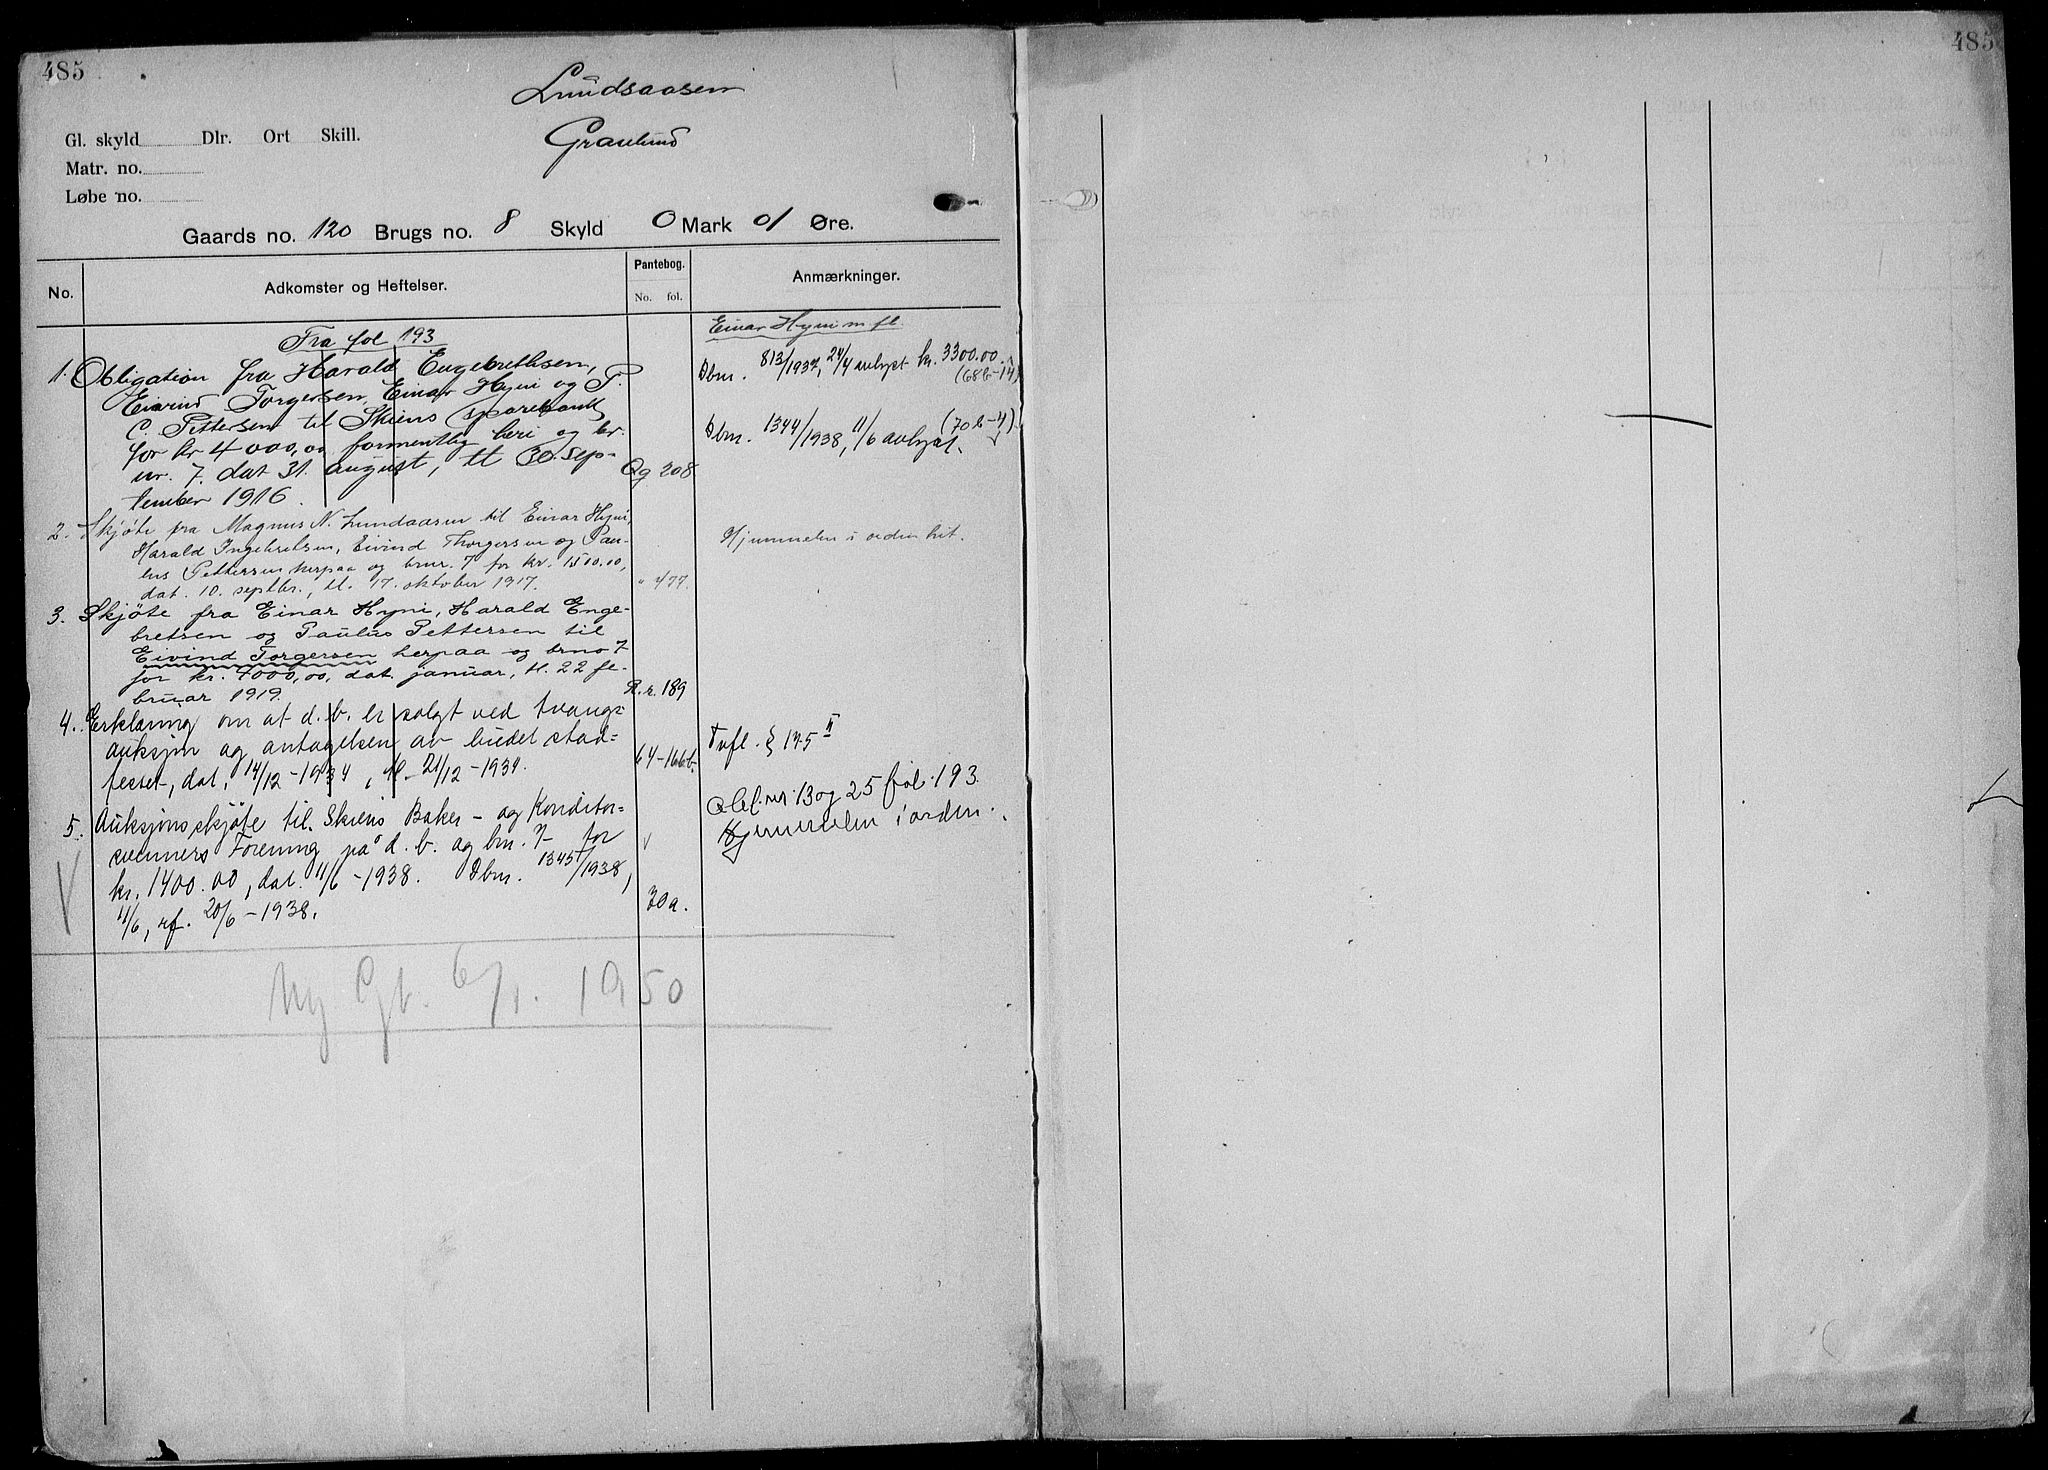 485
485
Lundsaasen
Granlund
Gl. skyld Dlr. Ort Skill.
Matr. no.
Løbe no.
Gaards no. 120 Brugs no. 8 Skyld 0 Mark 01 Øre.
No.
Adkomster og Heftelser.
Pantebog.
No. fol.
Anmærkninger.
Fra fol 193
1. Obligation fra Harald Engebrethsen,
Eivind Torgersen, Einar Hyni og P.
C. Pettersen til Skiens sparebank
for kr 4000,00 formentlig heri og br.
nr. 7. dat 31. august, tl 30. sep-
tember 1916.
Qg 208
Einar Hyni m. fl.
Dbnr. 813/1937, 24/4 avlyst kr. 3300.00.
(68b-14)
Dbnr. 1344/1938, 11/6 avlyst.
(70b-4)
2. Skjøte fra Magnus N. Lundaasen til Einar Hyni,
Harald Ingebretsen, Eivind Thorgersen og Pau-
lus Pettersen herpaa og bnr. 7 for kr. 1500.00,
dat. 10. septbr., tl. 17. oktober 1917.
" 477.
Hjemmelen i orden hit.
3. Skjøte fra Einar Hyni, Harald Enge-
bretsen og Paulus Pettersen til
Eivind Torgersen herpaa og brno 7
for kr. 4000,00, dat. januar, tl. 22 fe-
bruar 1919.
R.r. 189
4. Erklæring om at d. b. er solgt ved tvangs-
auksjon og antagelsen av budet stad-
festet, dat. 14/12-1934, tl. 21/12-1934.
64-166b.
Tvfl. § 175 II
Obl. nr. 13 og 25 fol. 193.
5. Auksjonsskjøte til Skiens Baker- og Konditor-
svenners Forening på d. b. og bnr. 7 for
kr. 1400.00, dat. 11/6-1938. Dbnr. 1345/1938,
11/6, rf. 20/6-1938.
70a.
Hjemmelen i orden.
Ny Gb. 6/1. 1950